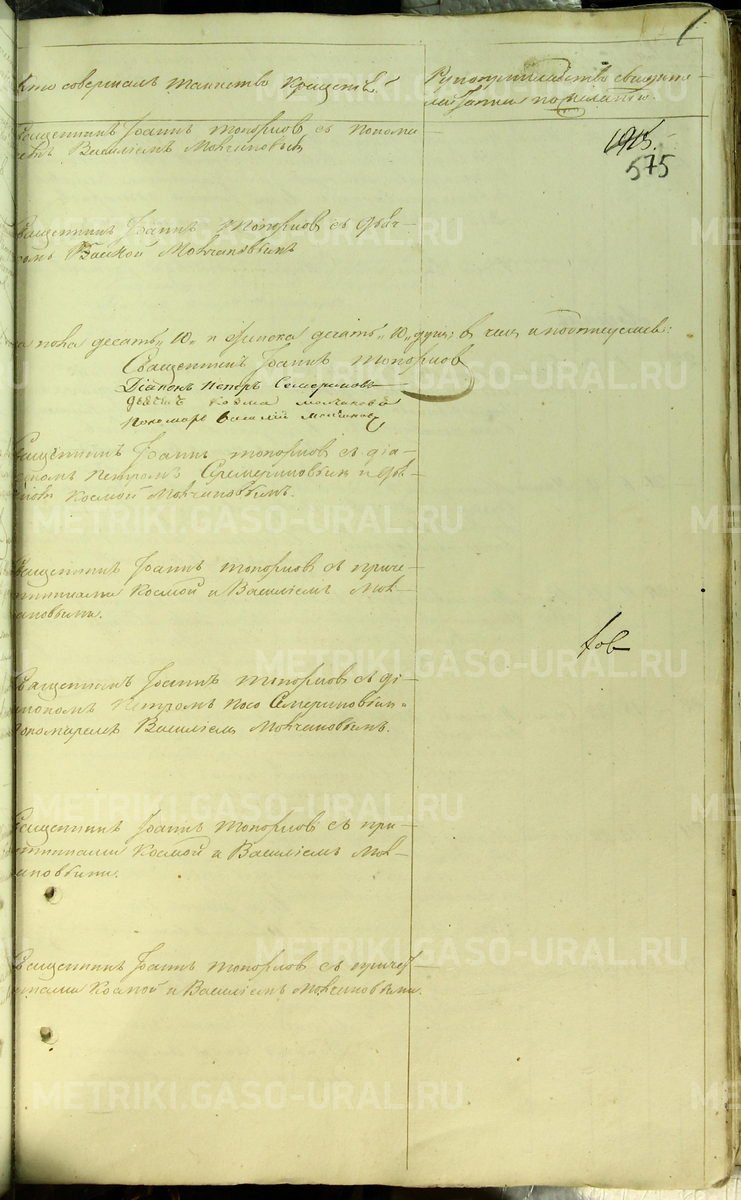 Кто совершалъ таинство крещенiя.
Рукоприкладство свидѣте-
лей записи по желанiю.
1915.
575
Священникъ Iоаннъ Топорковъ съ понома
ремъ Василiемъ Молчановымъ
Священникъ Iоаннъ Топорковъ съ дьяч-
комъ Космой Молчановымъ
пола десять „10„ и женска десять „10„ душъ:
Священникъ Iоаннъ Топорковъ
Дiаконъ Петръ
дьячекъ Козма Молчановъ
Пономарь Василiй Молчановъ
Священникъ Iоаннъ Топорковъ съ дiа-
кономъ Петромъ и дьяч-
Космой Молчановымъ.
Священникъ Iоаннъ Топорковъ съ приче-
тниками Космой и Василiемъ Мол-
чановыми.
Священникъ Iоаннъ Топорковъ съ дi
акономъ Петромъ
Пономаремъ Василiемъ Молчановымъ.
Священникъ Iоаннъ Топорковъ съ при-
четниками Космой и Василiемъ Мол-
чановыми.
Священникъ Iоаннъ Топорковъ съ приче-
тниками Космой и Василiемъ Молчановыми.
METRIKI.GASO-URAL.RU